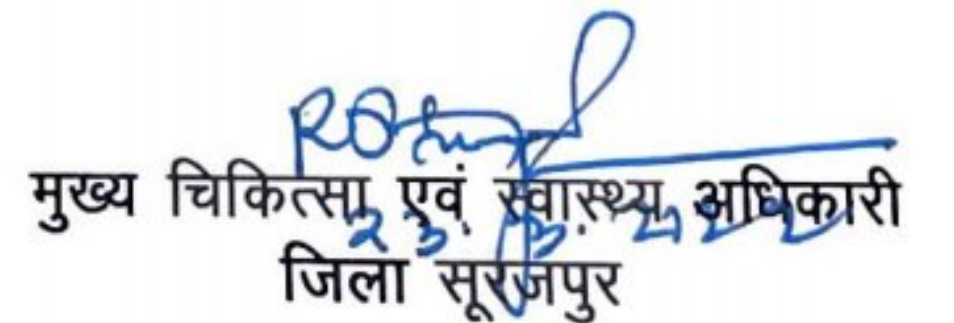 मुख्य चिकित्सा एवं स्वास्थ्य अधिकारी
जिला सूरजपुर